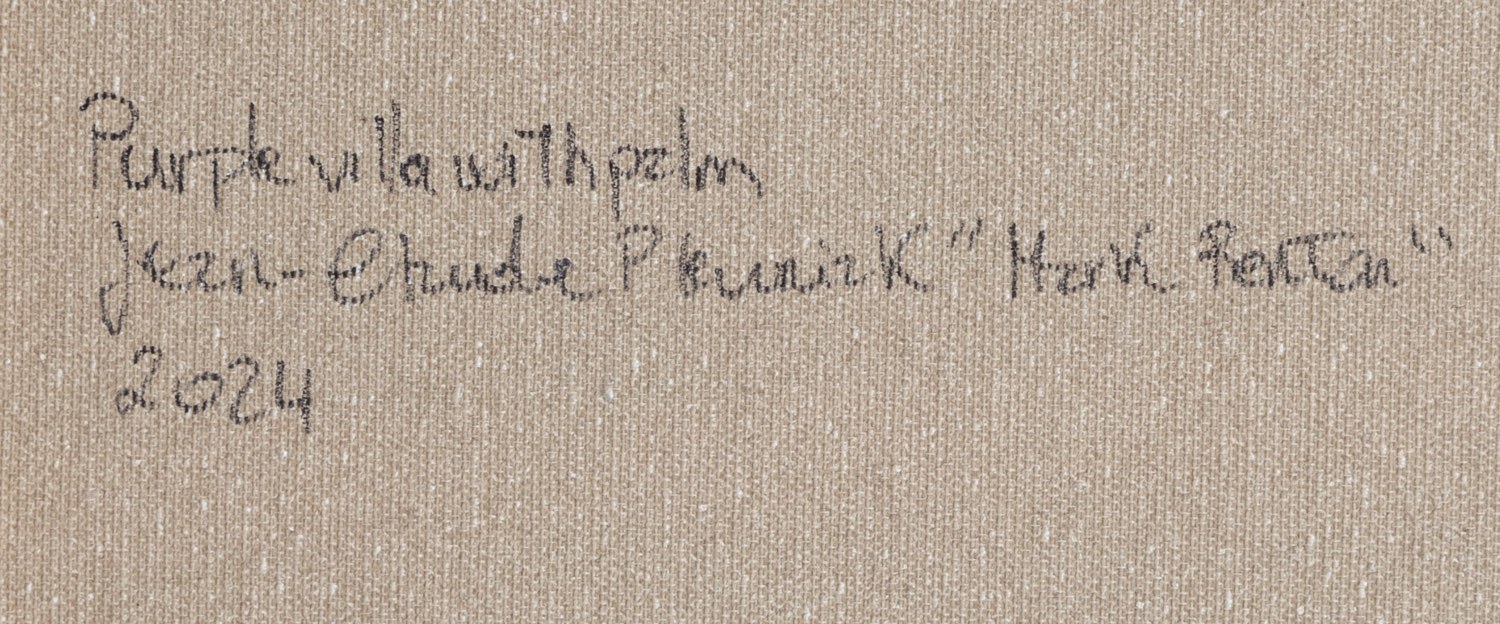 Purple villa with palm
Jean-Claude Pleuniak "Mark Renton"
2024